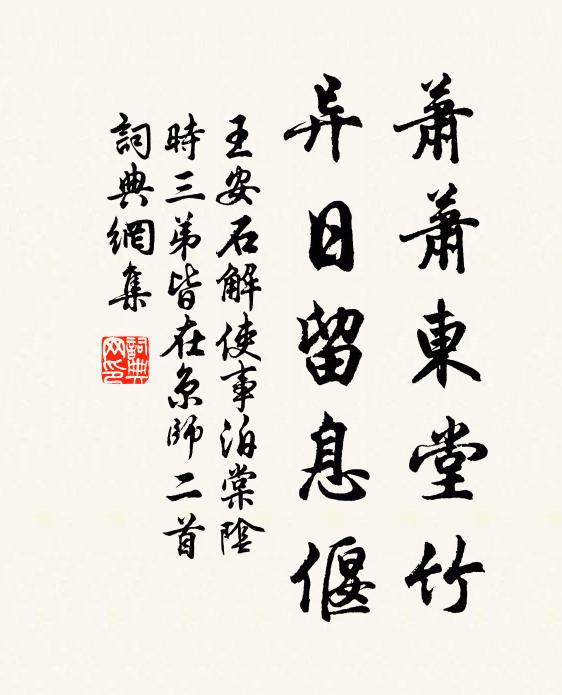 蕭蕭東堂竹
异日留息偃
王安石解使事泊棠陰
時三弟皆在京師二首
詞典網集
詞典網印